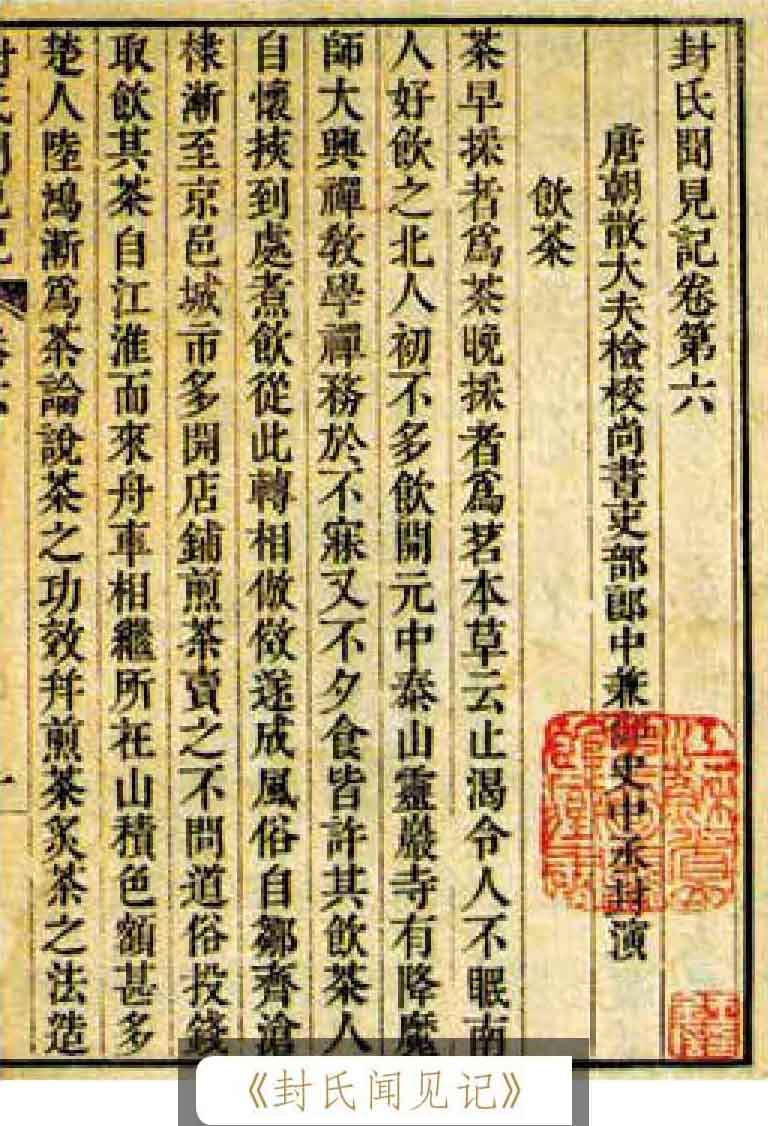 封氏聞見記卷第六
唐朝散大夫檢校尚書吏部郎中兼御史中丞封演
飲茶
茶早採者爲茶晚採者爲茗本草云止渴令人不眠南
人好飲之北人初不多飲開元中泰山靈巖寺有降魔
師大興禪教學禪務於不寐又不夕食皆許其飲茶人
自懷挾到處煮飲從此轉相倣傚遂成風俗自鄒齊滄
棣漸至京邑城市多開店鋪煎茶賣之不問道俗投錢
取飲其茶自江淮而來舟車相繼所在山積色額甚多
楚人陸鴻漸爲茶論說茶之功效幷煎茶炙茶之法造
《封氏闻见记》